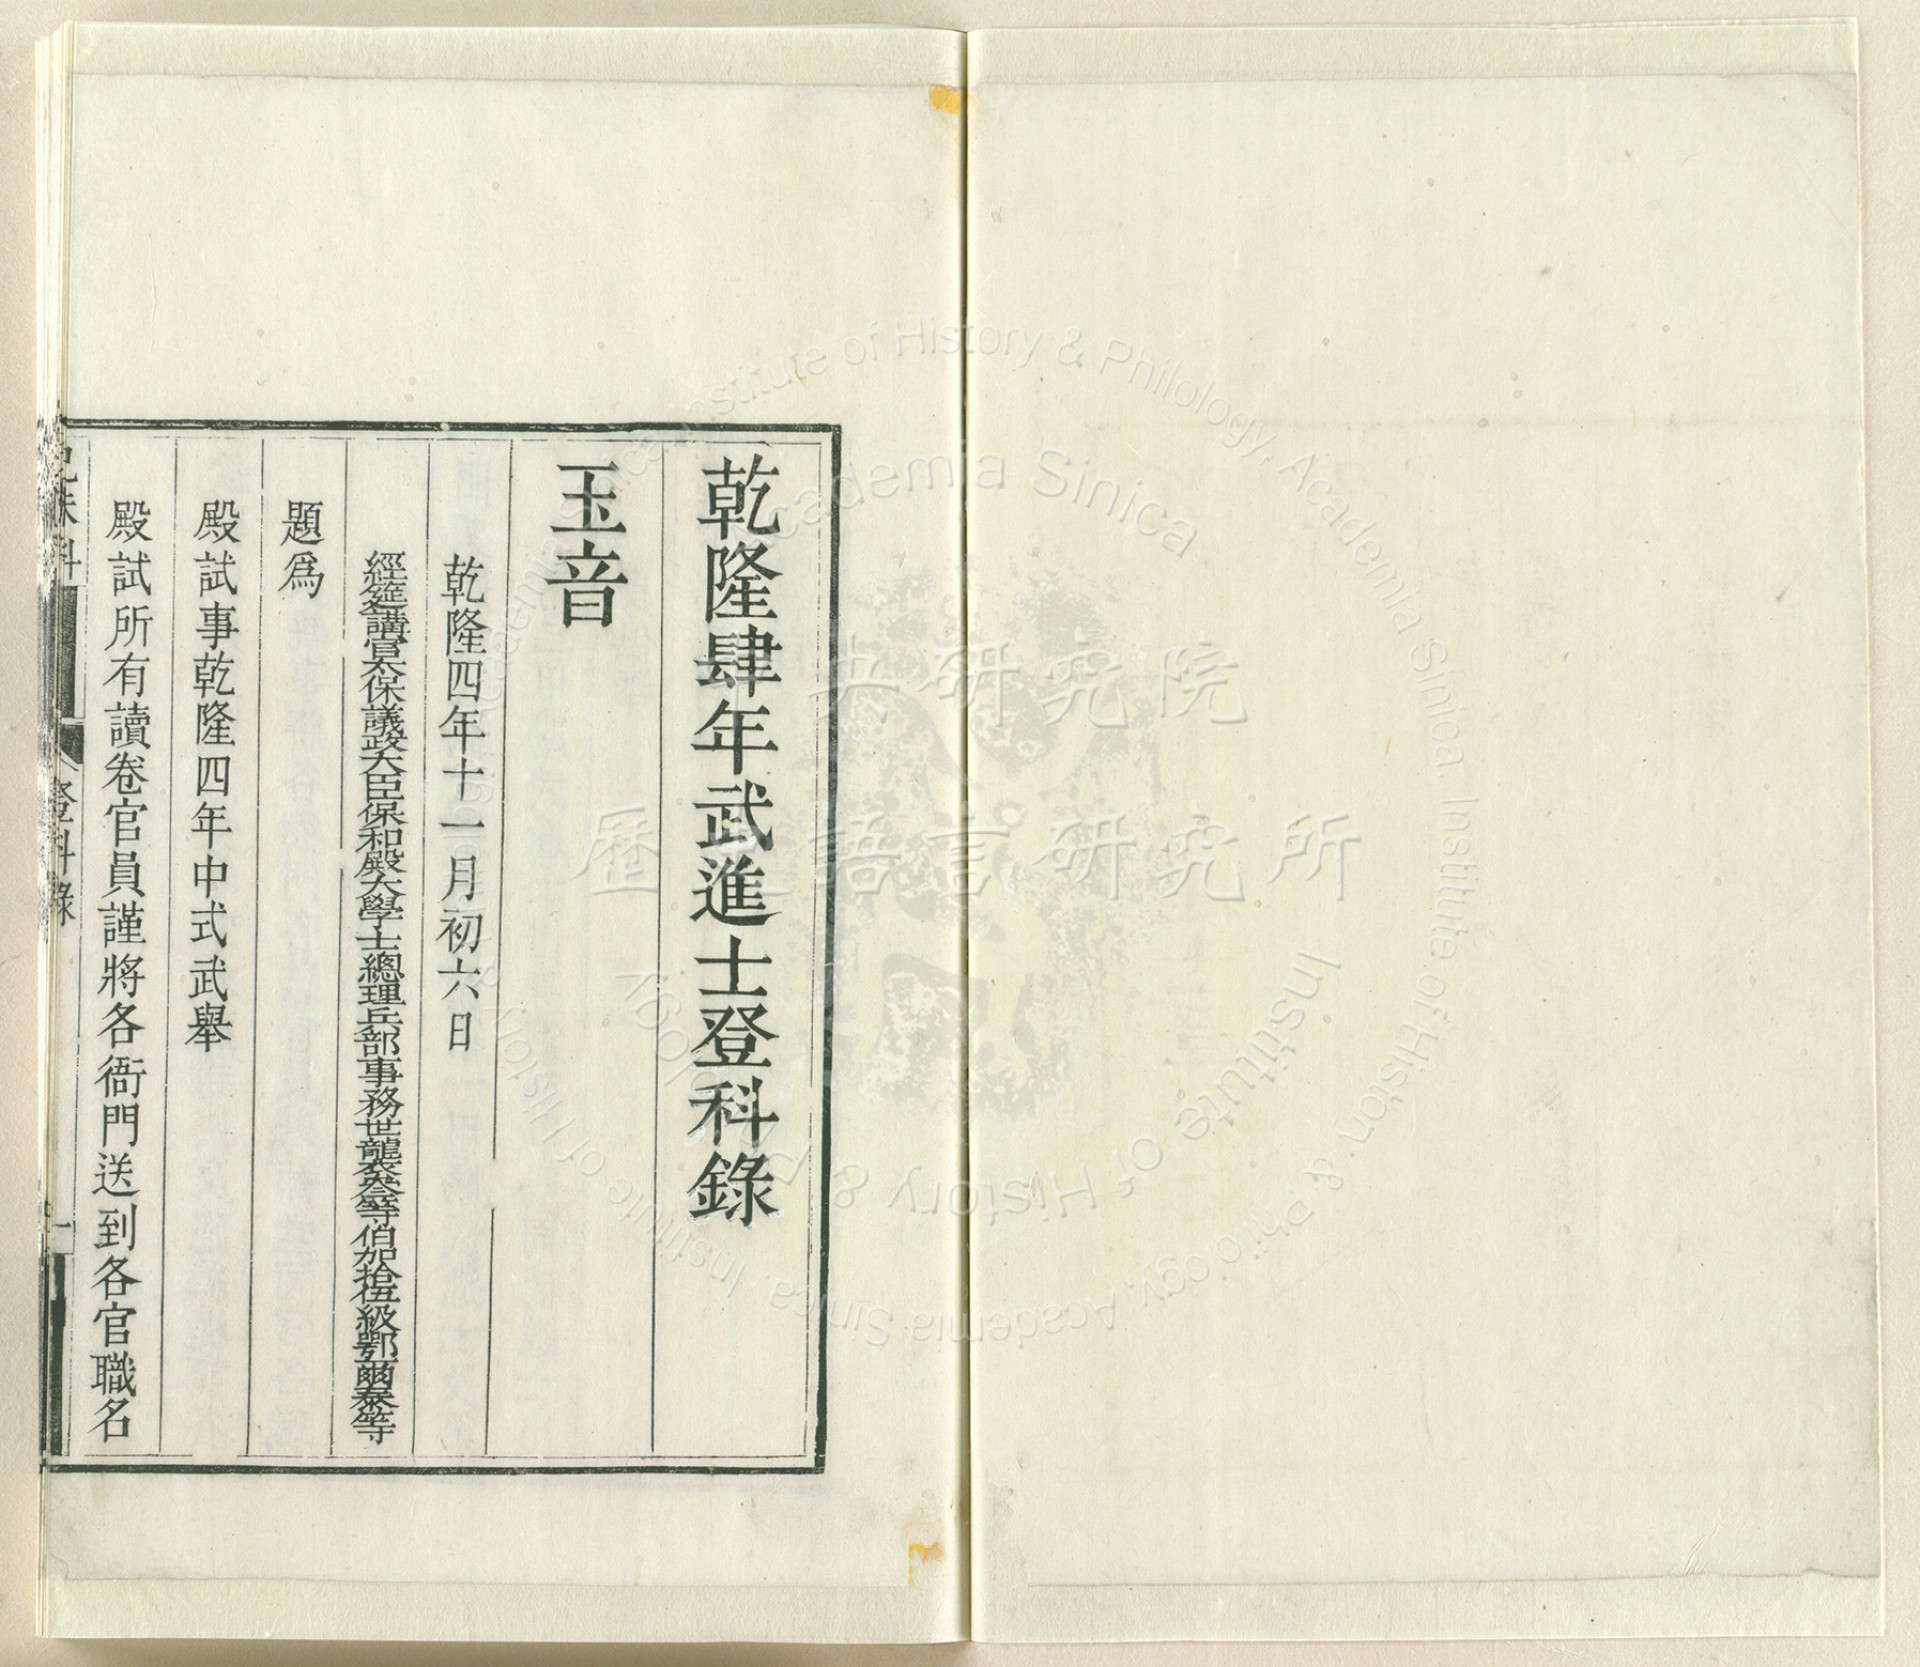 乾隆肆年武進士登科錄
玉音
乾隆四年十一月初六日
經筵講官太保議政大臣保和殿大學士總理兵部事務世襲叁等伯加拾伍級鄂爾泰等
題爲
殿試事乾隆四年中式武舉
殿試所有讀卷官員謹將各衙門送到各官職名
科 登科錄 一
央研究院
歷史語言研究所
Institute of History & Philology, Academia Sinica